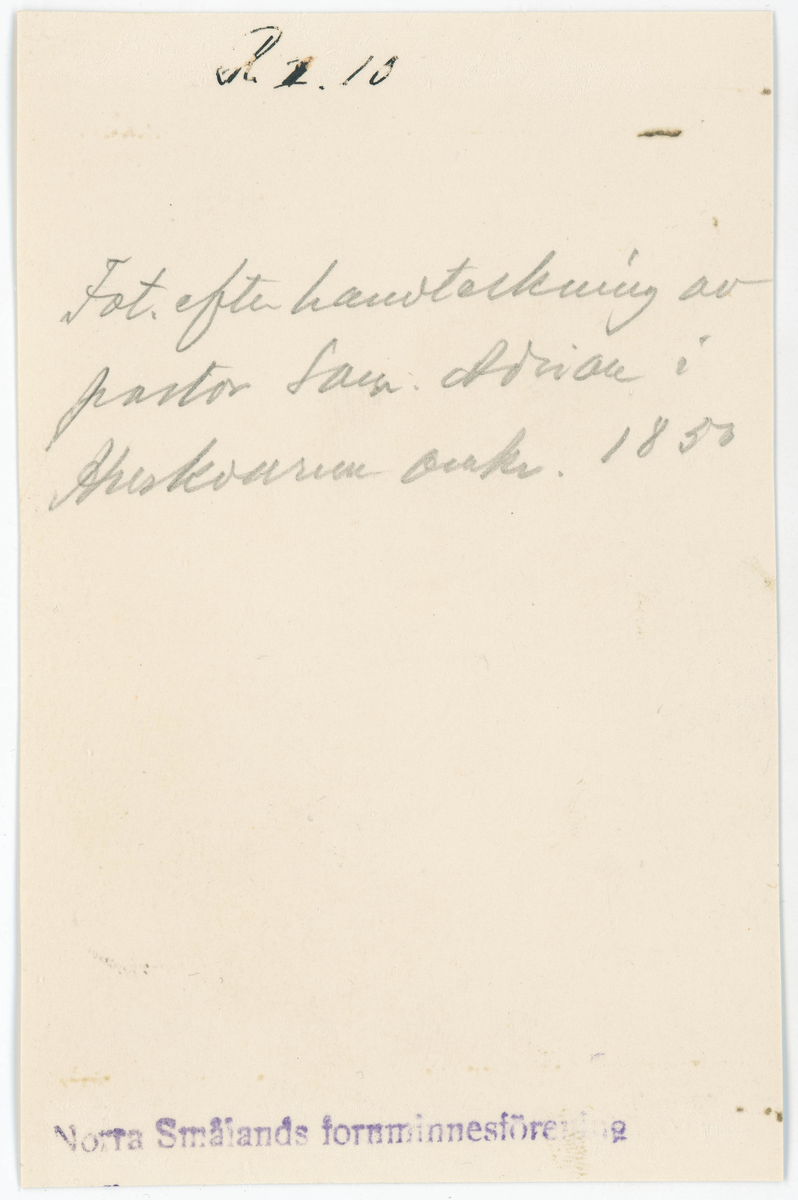 R 2. 10
Fot. efter handteckning av
pastor Sam. Adrian i
omkr. 1850
Norra Smålands fornminnesförening